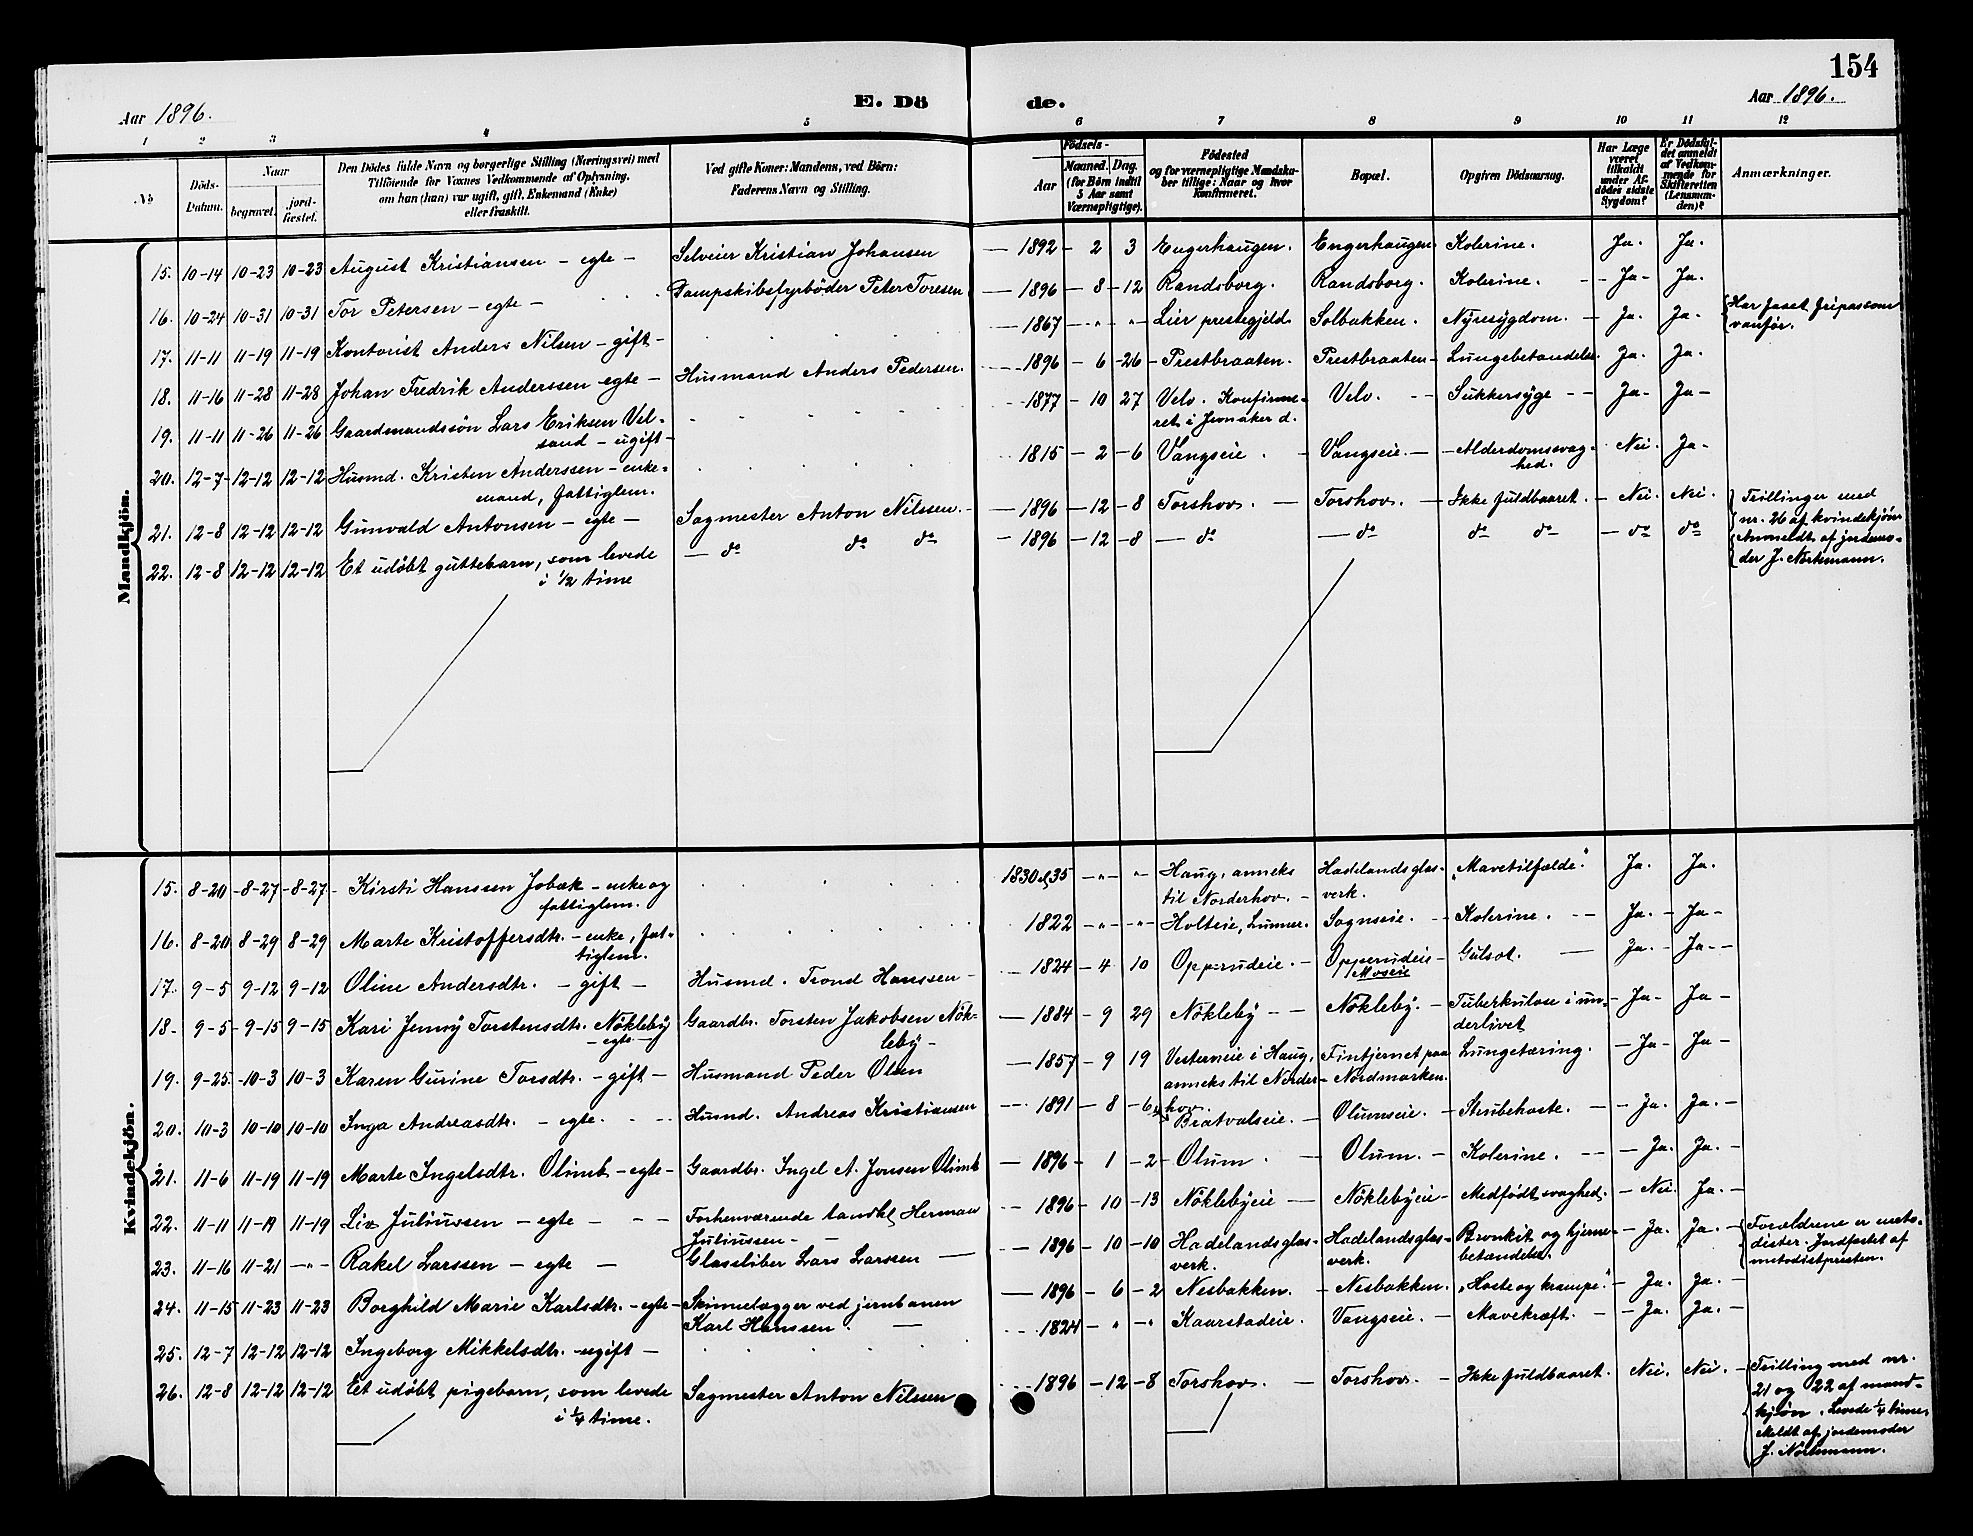 154
Aar 1896.
E. Dö
de.
Aar 1896.
1 2 3 4 5 6 7 8 9 10 11 12
No
Döds-
Datum.
Naar
begravet.
jord-
fæstet.
Den Dödes fulde Navn og borgerlige Stilling (Næringsvei) med
Tilföiende for Voxnes Vedkommende af Oplysning.
om han (hun) var ugift, gift, Enkemand (Enke)
eller fraskilt.
Ved gifte Koner: Mandens, ved Börn:
Faderens Navn og Stilling.
Födsels-
Aar
Maaned. Dag.
(for Börn indtil
5 Aar samt
Værnepligtige).
Födested
og for værnepligtige Mandska-
ber tillige: Naar og hvor
konfirmeret.
Bopæl.
Opgiven Dödsaarsag.
Har Læge
været
tilkaldt
under Af-
dödes sidste
Sygdom?
Er Dödsfal-
det anmeldt
af Vedkom-
mende for
Skifteretten
(Lensman-
den)?
Anmærkninger.
Mandkjön.
15. 10-14 10-23 10-23 August Kristiansen - egte - Selveier Kristian Johansen — 1892 - 2 3 Engerhaugen. Engerhaugen Kolerine. Ja. Ja.
16. 10-24 10-31 10-31 Tor Petersen - egte - Dampskibsfyrbøder Peter Toresen — 1896 - 8 - 12 Randsborg. Randsborg. Kolerine. - Ja - Ja.
17. 11-11 11-19 11-19 Kontorist Anders Nilsen - gift - — 1867 - " - " - Lier prestegjeld. Solbakken. Nyresygdom. - Ja. Ja. Har faaet fripas som
vanfør.
18. 11-16 11-28 11-28 Johan Fredrik Anderssen - egte - Husmand Anders Pedersen. 1896 - 6 - 26 - Prestbraaten. Prestbraaten - Lungebetændelse. Ja. Ja.
19. 11-11 11-26 11-26 Gaardmandssön Lars Eriksen Vel-
sand - ugift - 1877 - 10 27 Velo. Konfirme-
ret i Jevnaker d. Velo. - Sukkersyge - - Ja - Ja -
20. 12-7 12-12 12-12 Husmd. Kristen Anderssen - enke-
mand, fattiglem. 1815 - 2 - 6 Vangseie. - Vangseie. - Alderdomssvag-
hed. Nei. Ja -
21. 12-8 12-12 12-12 Gunvald Antonsen - egte - Sagmester Anton Nilssen. - 1896 - 12 - 8 Torshov. - Torshov. - Ikke fuldbaaret. - Nei. Nei. Trillinger med
nr. 26 af kvindekjøn.
22. 12-8 12-12 12-12 Et udöbt guttebarn, som levede
i 1/2 time - do do do - 1896 - 12 - 8 - do - do do do - do do Anmeldt af jordemo-
der J. Nörtemann.
Kvindekjön.
15. 8-20 8-27 8-27 - Kirsti Hanssen Jobak - enke og
fattiglem. 1830 el. 35 - " - " - Haug, anneks
til Norderhov. - Hadelandsglas-
verk. „Mavetilfælde." Ja. Ja.
16. 8-20 8-29 8-29 Marte Kristoffersdtr. - enke, fat-
tiglem. 1822 - " - " - Holteie, Lunner. Sognseie. - Kolerine. - - Ja. - Ja -
17. 9-5 9-12 9-12 Oline Andersdtr. - gift - Husmd. Trond Hanssen - 1824 - 4 10 Opperudeie. - Opperudeie -
Moseie Gulsot. Ja. - Ja -
18. 9-5 9-15 9-15 Kari Jenny Torstensdtr. Nökleby
- egte - Gaardbr. Torsten Jakobsen Nök-
leby - 1884 - 9 29 Nökleby - - Nökleby. - Tuberkulose i un-
derlivet - Ja - Ja -
19. 9-25 10-3 10-3 Karen Gurine Torsdtr. - gift - Husmand Peder Olsen - 1857 - 9 19 Vesterneie i Haug,
anneks til Norder-
hov. Fintjernet paa
- Nordmarken. Lungetæring. - Ja - Ja -
20. 10-3 10-10 10-10 Inga Andreasdtr. - egte. Husmd. Andreas Kristiansen 1891 - 8 - 6 Bratvalseie. - Olumseie. - Strubehoste. - Ja. Ja. -
21. 11-6 11-19 11-19 Marte Ingelsdtr. Olimb - egte - Gaardbr. Ingel A. Jonsen Olimb — 1896 - 1 - 2 Olum. - Olum. - Kolerine. - - Ja. Ja. -
22. 11-11 11-19 11-19 Liv Juliussen - egte - - Forhenværende landhl. Herman
Juliussen - 1896 - 10 - 13 Nöklebyeie - Nöklebyeie - Medfödt svaghed. - Nei. Ja. -
23. 11-16 11-21 - " - Rakel Larssen - egte - Glassliber Lars Larssen — 1896 - 10 - 10 Hadelandsglas-
verk. Hadelandsglas-
verk. Bronkit og hjerne-
betændelse. - Ja. Ja. - Forældrene er meto-
dister. Jordfæstet af
metodistpresten.
24. 11-15 11-23 11-23 Borghild Marie Karlsdtr. - egte - Skinnelægger ved jernbanen
Karl Hanssen. — 1896 - 6 - 2 Nesbakken. - Nesbakken. „Hoste og krampe." - Ja. Ja. -
25. 12-7 12-12 12-12 Ingeborg Mikkelsdtr. - ugift - 1824 - " - " Kaarstadeie. Vangseie. - Mavekræft. - - Ja. Ja. -
26. 12-8 12-12 12-12 Et udöbt pigebarn, som levede
i 1/4 time. Sagmester Anton Nilssen 1896 - 12 - 8 Torshov. - Torshov. - Ikke fuldbaaret. Nei. Nei. - Trilling med nr.
21 og 22 af mand-
kjön. Levede 1/4 time.
Meldt af jordemoder
J. Nörtemann.